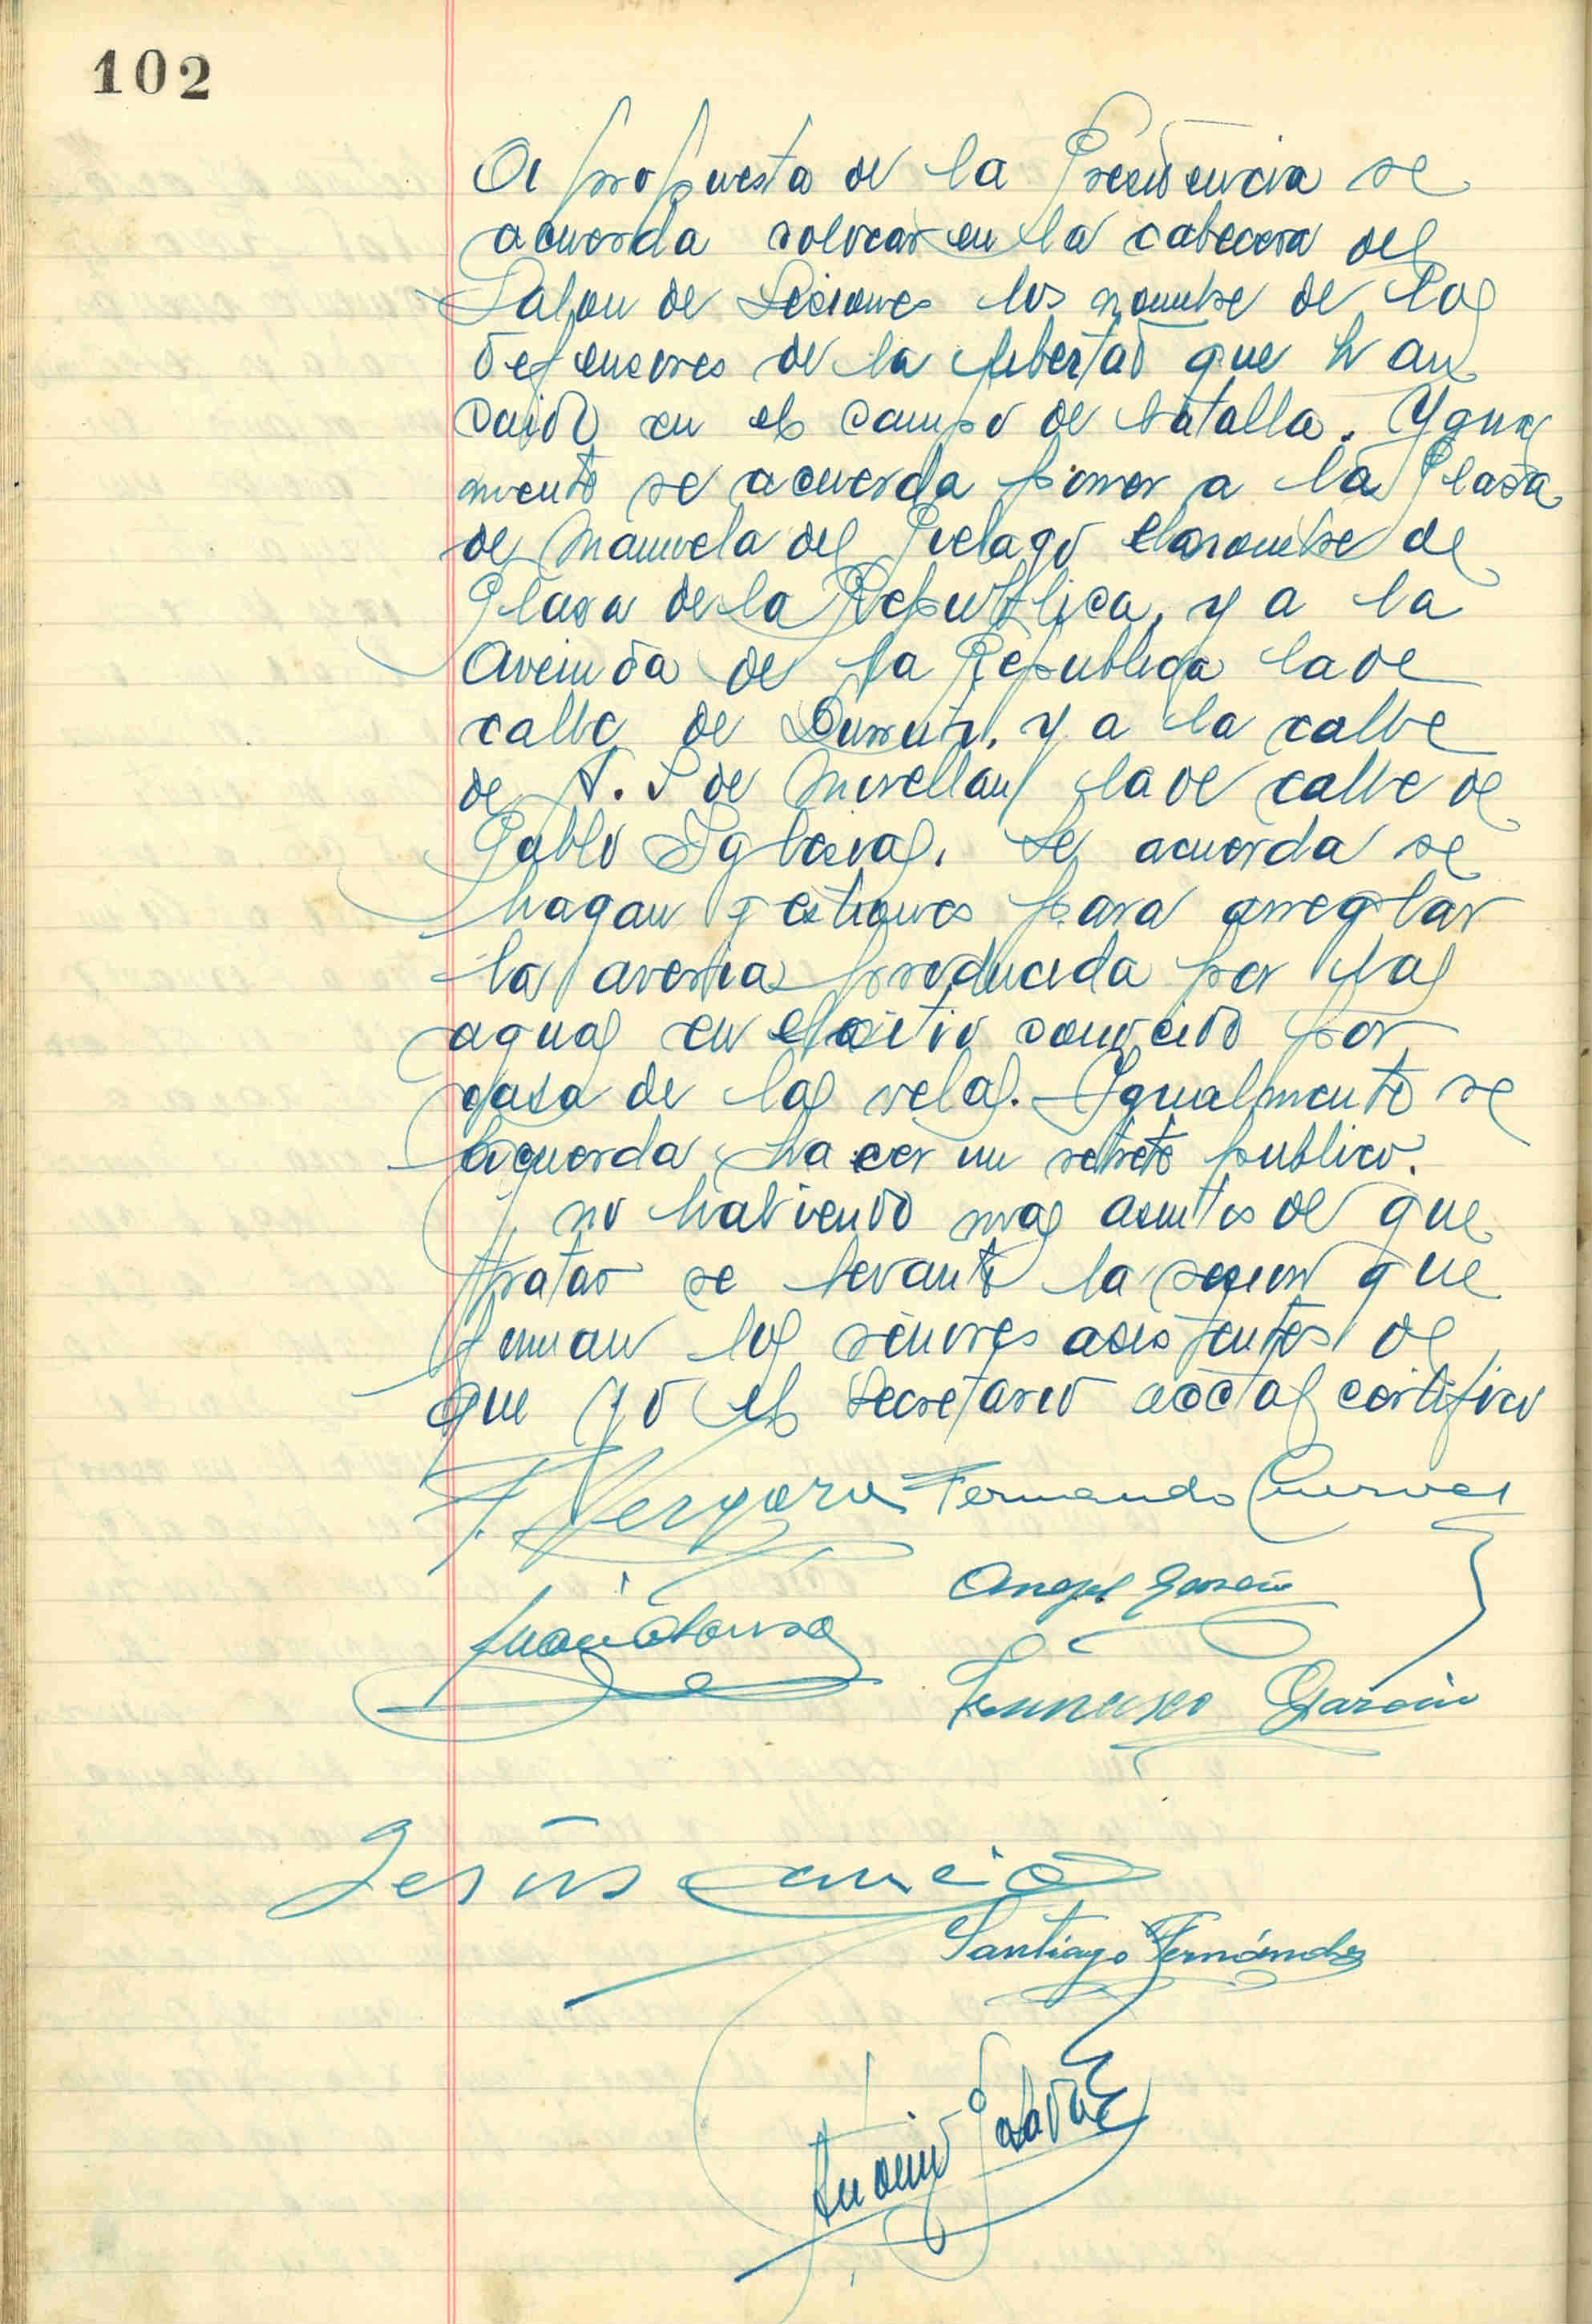 102
A propuesta de la Presidencia se
acuerda colocar en la cabecera del
Salon de Sesiones los nombre de los
defensores de la libertad que han
caido en el campo de batalla. Ygual
mente se acuerda poner a la Plaza
de Manuela del Pielago el nombre de
Plaza de la Republica, y a la
Avenida de la Republica la de
calle de Durruti, y a la calle
de N. S de Mirellau la de calle de
Pablo Iglesias. Se acuerda se
hagan gestiones para arreglar
la averia producida por las
aguas en el sitio conocido por
casa de las velas. Igualmente se
acuerda hacer un retrete publico.
Y no habiendo mas asuntos de que
tratar se levanto la sesion que
firman los señores asistentes de
que yo el Secretario acctal certifico
F. Vergara Fernando Cuevas
Angel Garcia
Juan Alonso
Francisco Garcia
Jesús Cancio
Santiago Fernández
Antonio